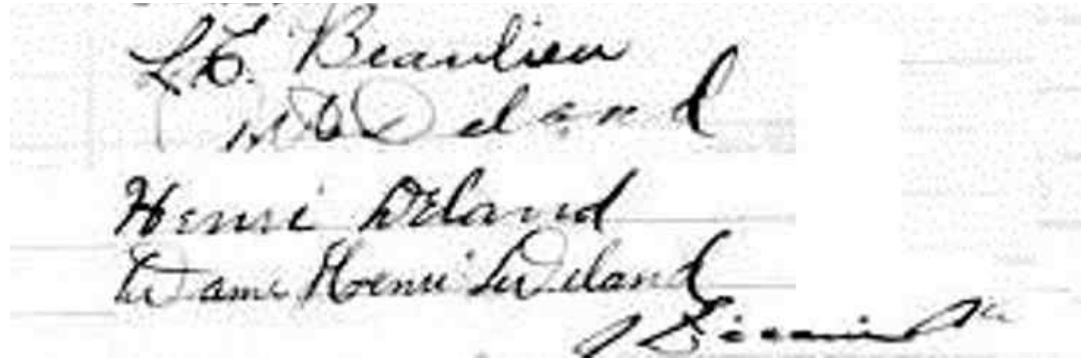 L. C. Beaulieu
Deland
Henri Deland
Dame Henri Deland